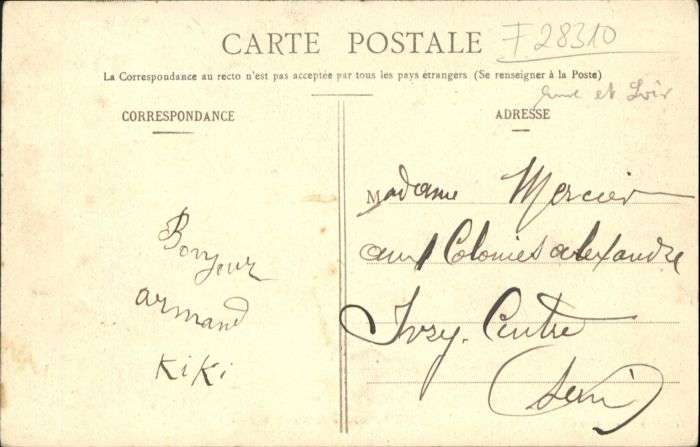 CARTE POSTALE
F 28310
La Correspondance au recto n'est pas acceptée par tous les pays étrangers (Se renseigner à la Poste)
Eure et Loir
CORRESPONDANCE
ADRESSE
Bonjour
armand
KiKi
Madame Mercier
aux Colonies alexandre
Ivry-Centre
(Seine)